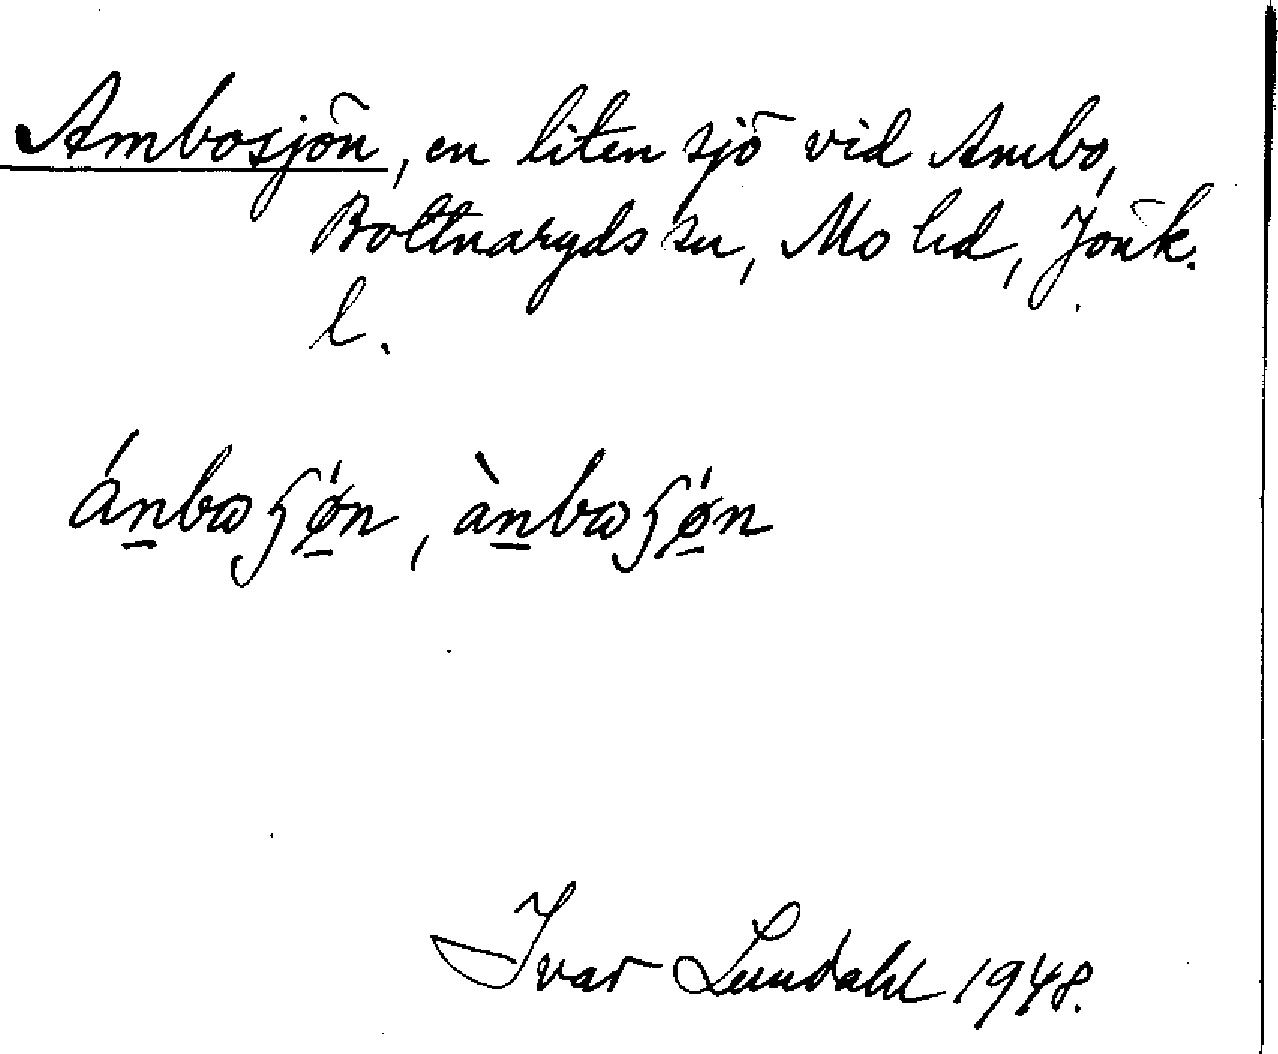 Ambosjön, en liten sjö vid Ambo,
Bottnaryds sn, Mo hd, Jönk.
l.
ánbωʃǿ̱n, ànbωʃǿ̱n
Ivar Lundahl 1948.